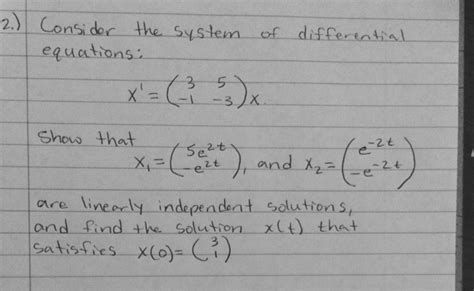 2.) Consider the system of differential
equations:
x' = ( 3 5 ; -1 -3 ) x.
Show that
x₁ = ( 5e^{2t} ; -e^{2t} ), and x₂ = ( e^{-2t} ; -e^{-2t} )
are linearly independent solutions,
and find the solution x(t) that
satisfies x(0) = ( 3 ; 1 )